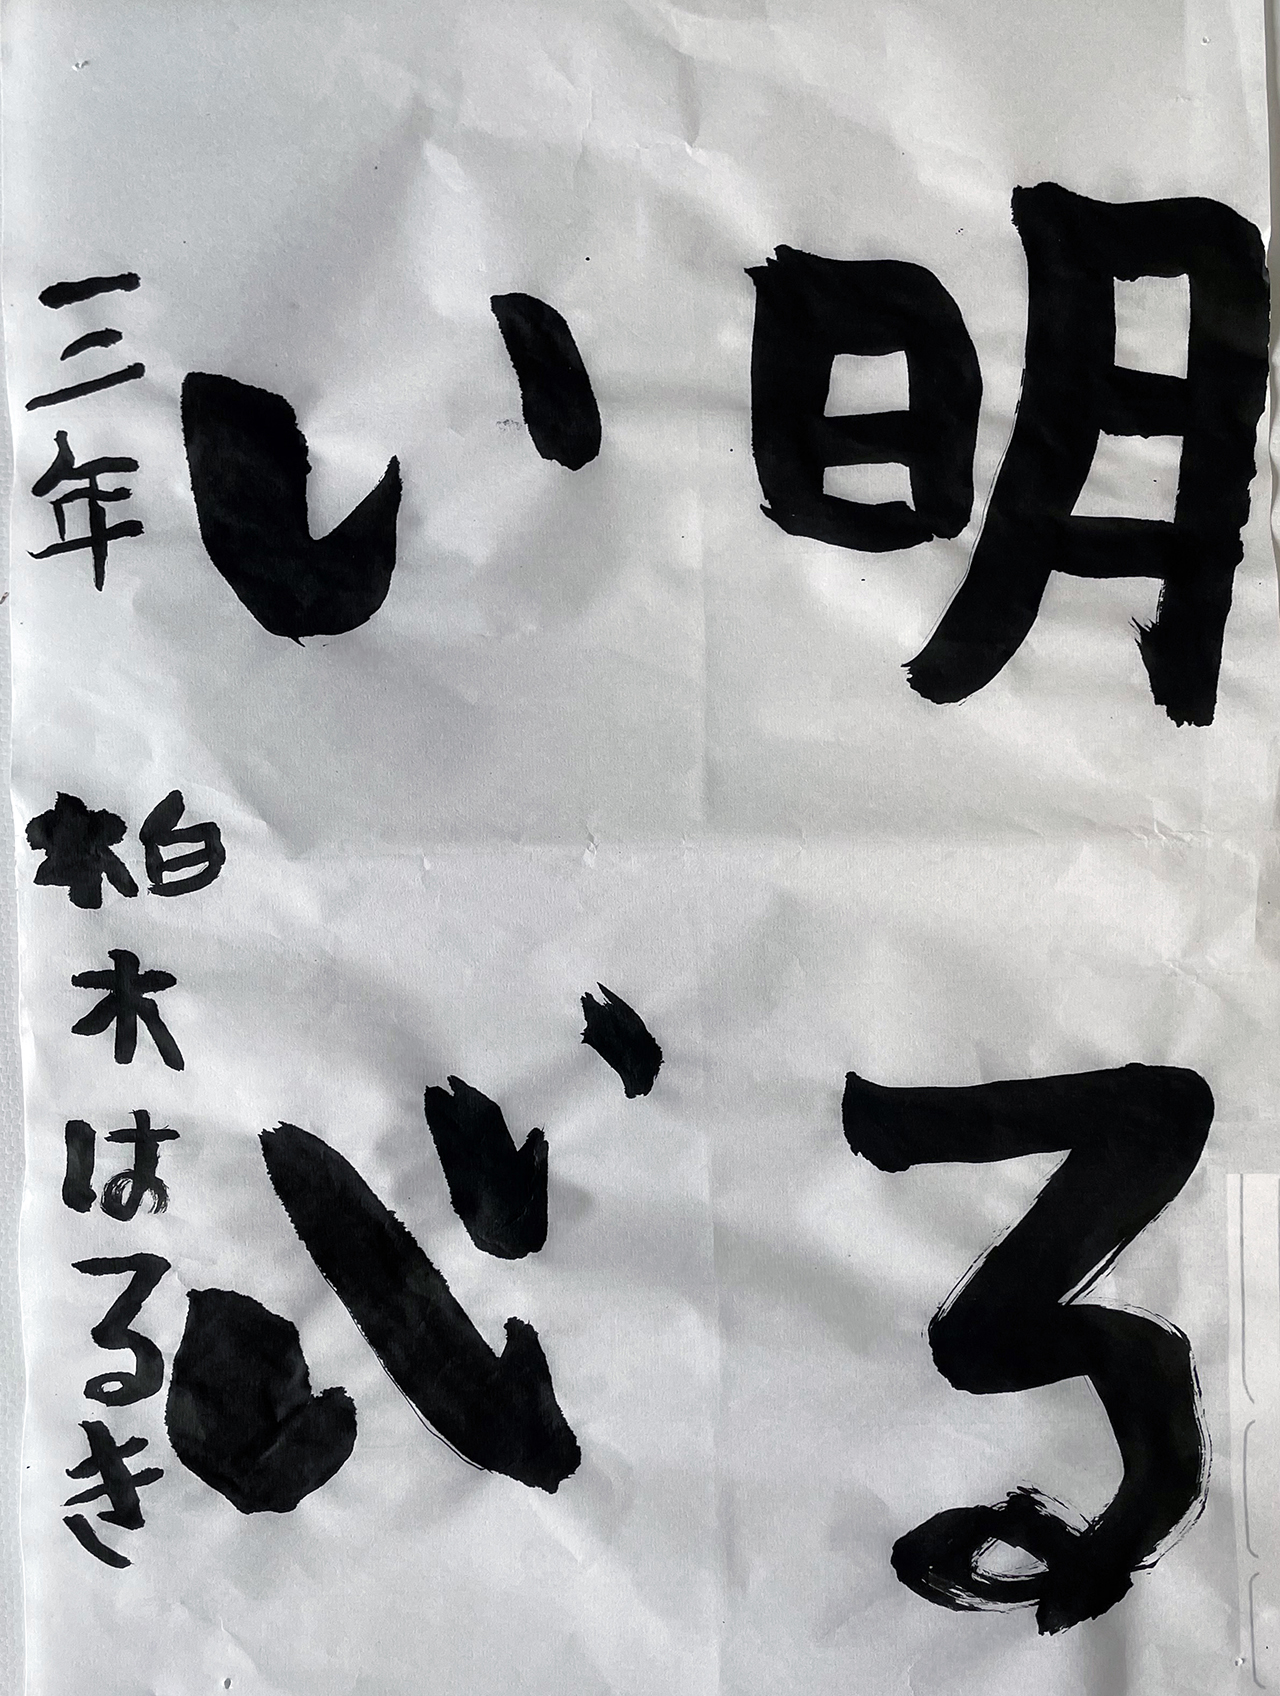 明る
い心
三年 柏木はるき